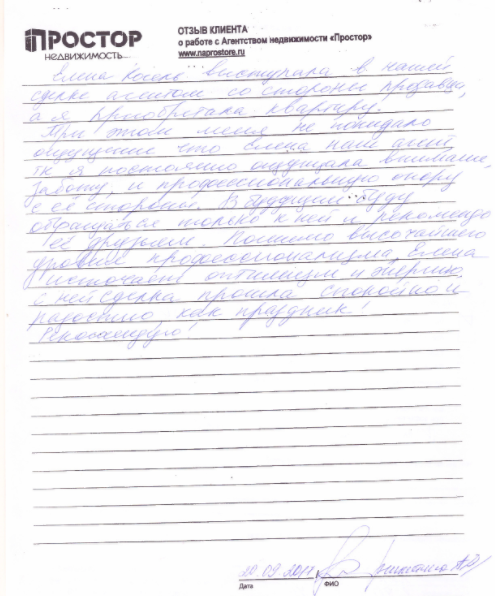 ПРОСТОР
НЕДВИЖИМОСТЬ
ОТЗЫВ КЛИЕНТА
о работе с Агентством недвижимости «Простор»
www.naprostore.ru
Елена выступала в нашей
сделке агентом со стороны продавца,
а я приобретала квартиру.
При этом меня не покидало
ощущение что Елена наш агент
тк я постоянно ощущала внимание,
заботу, и профессиональную опору
с её стороны. В будущем буду
обращаться только к ней и рекомендо
её друзьям. Помимо высочайшего
уровня профессионализма, Елена
источает оптимизм и энергию,
с ней сделка прошла спокойно и
радостно, как праздник!
Рекомендую!
20.09.2017
Дата
ФИО